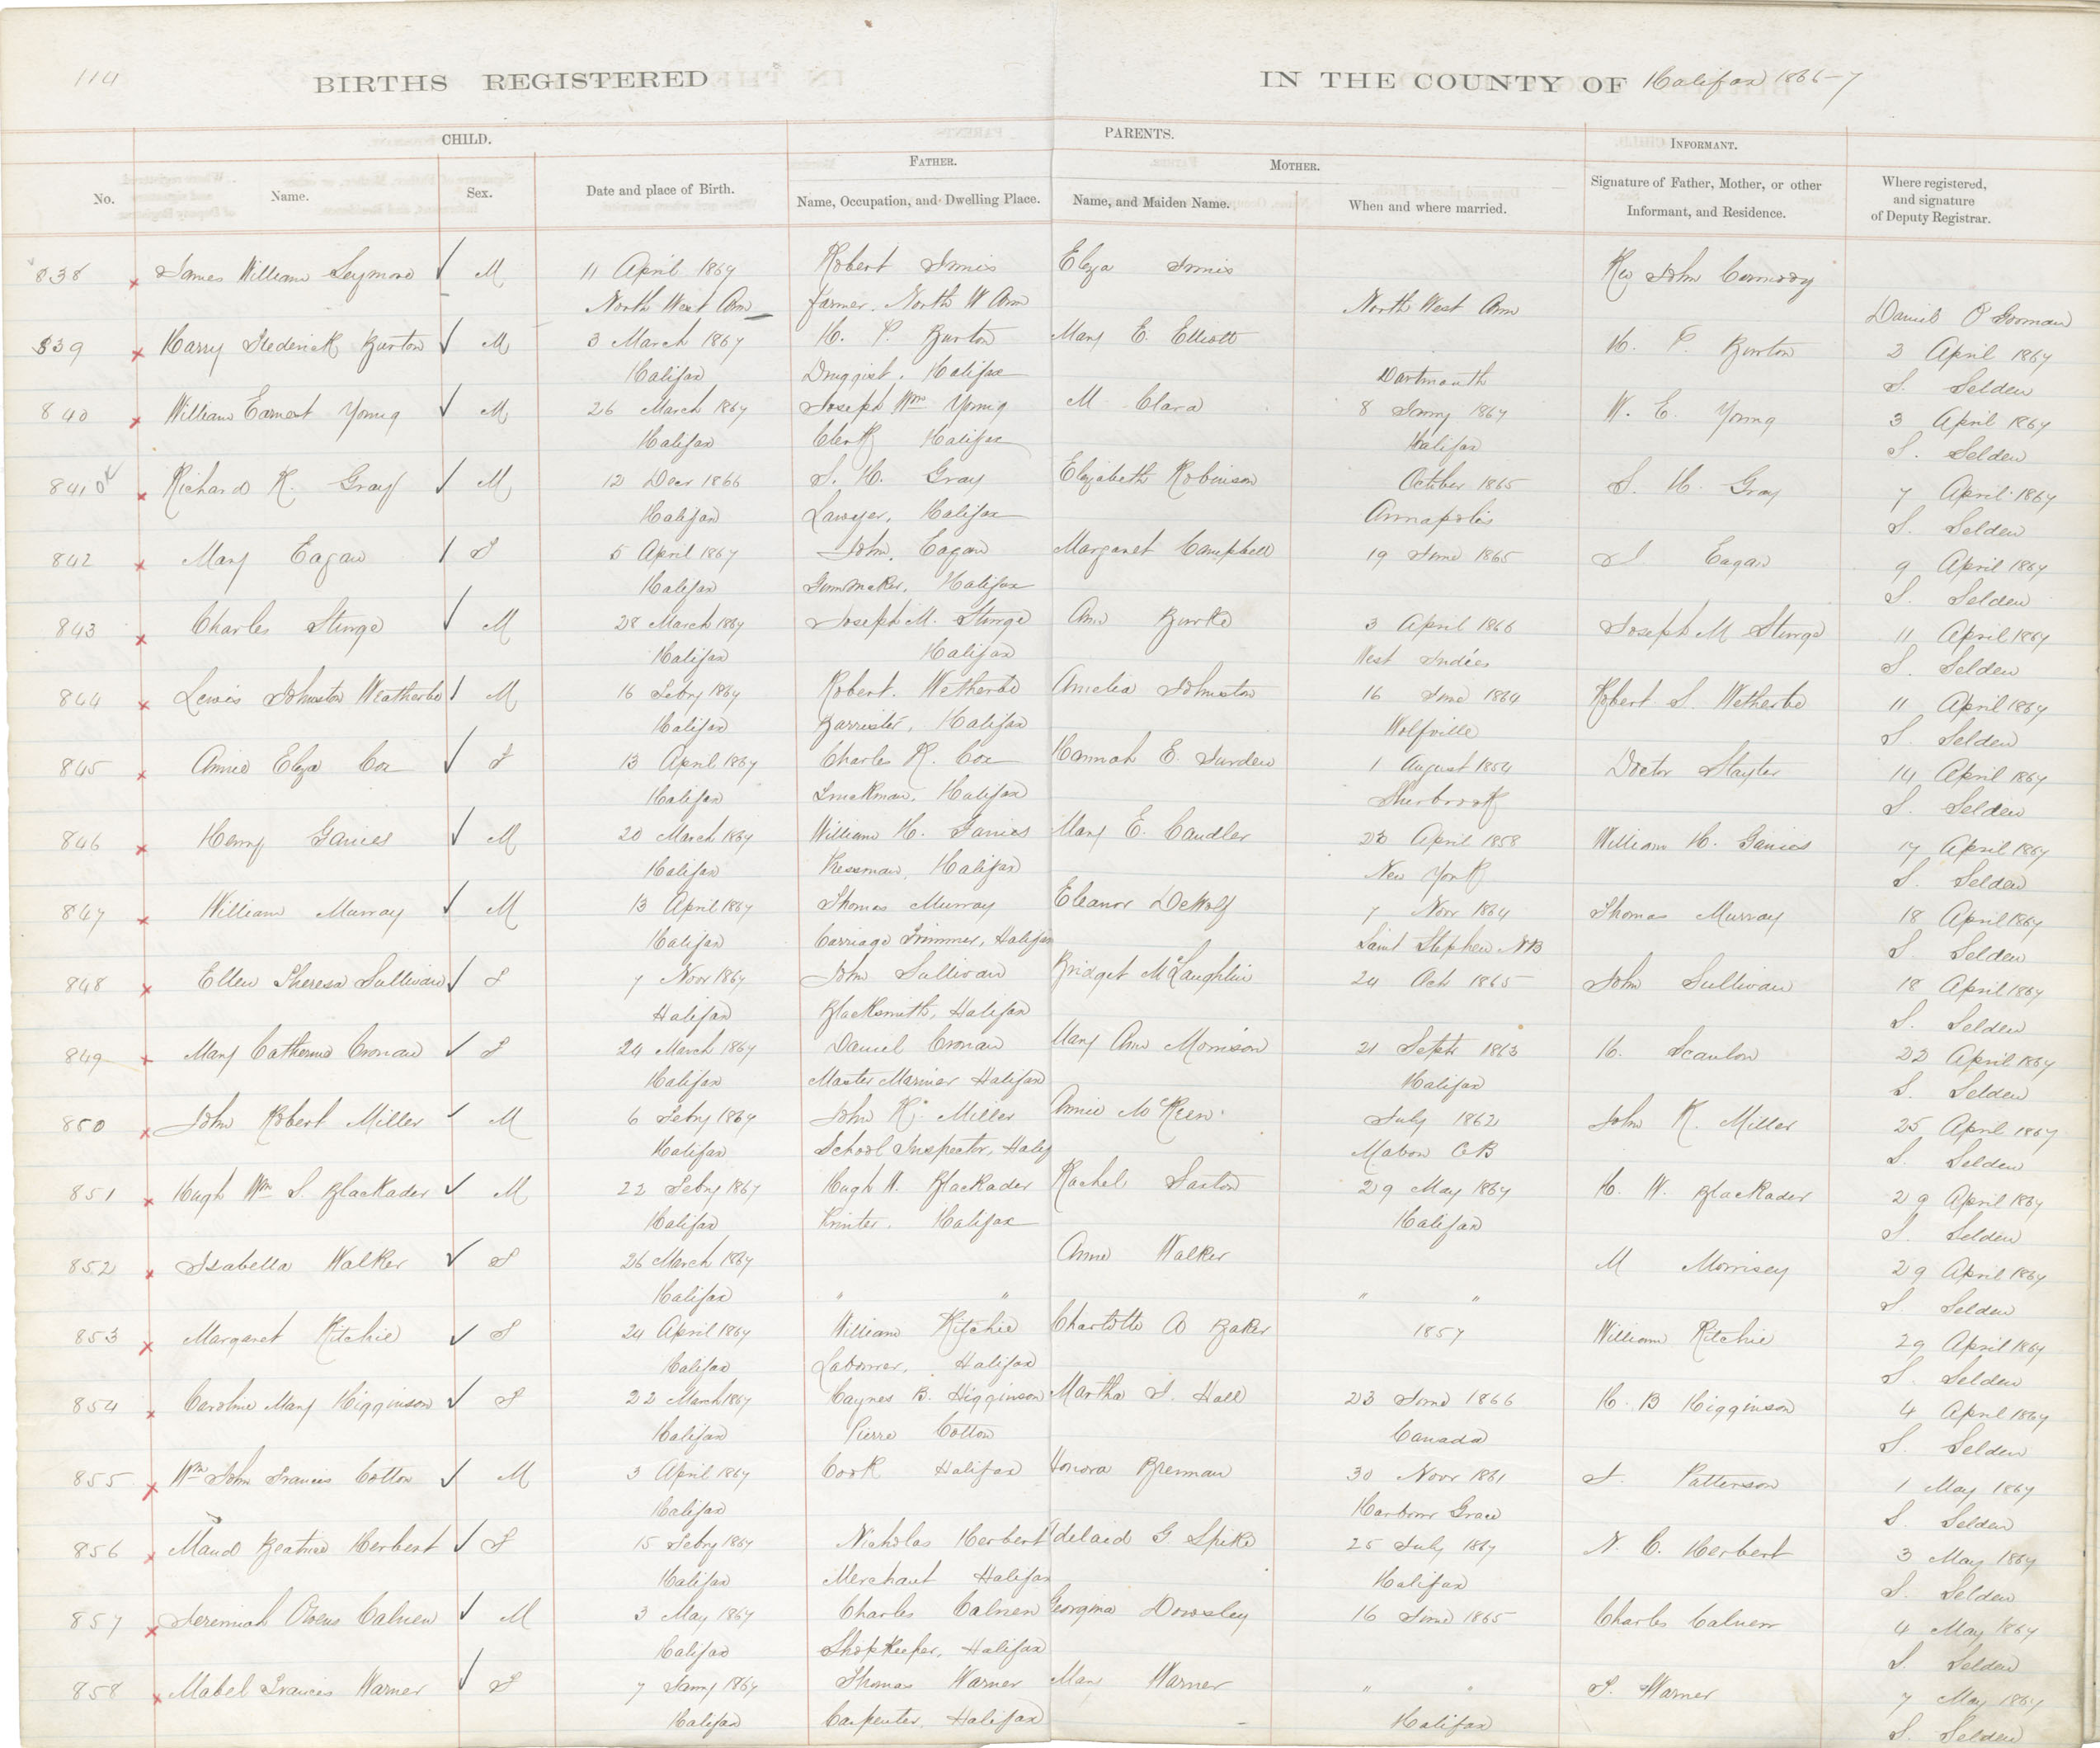 114
BIRTHS REGISTERED IN THE COUNTY OF Halifax 1866-7
CHILD. PARENTS. INFORMANT.
FATHER. MOTHER.
No. Name. Sex. Date and place of Birth. Name, Occupation, and Dwelling Place. Name, and Maiden Name. When and where married. Signature of Father, Mother, or other Informant, and Residence. Where registered, and signature of Deputy Registrar.
838 James William Seymore M 11 April 1867 Robert Innis Eliza Innis Rev John Carmody
North West Arm Farmer. North W Arm North West Arm Daniel O'Gorman
839 Harry Frederick Burton M 3 March 1867 H. P. Burton Mary E. Elliott H. P. Burton 3 April 1867
Halifax Druggist. Halifax Dartmouth S. Selden
840 William Earnest Young M 26 March 1867 Joseph Wm Young M Clara 8 Jany 1867 W. E. Young 3 April 1867
Halifax Clerk Halifax Halifax S. Selden
841 Richard R. Gray M 12 Decr 1866 S. H. Gray Elizabeth Robinson October 1865 S. H. Gray 7 April 1867
Halifax Lawyer, Halifax Annapolis S. Selden
842 Mary Eagan F 5 April 1867 John Eagan Margaret Campbell 19 June 1865 J Eagan 9 April 1867
Halifax Gunmaker, Halifax S. Selden
843 Charles Sturge M 28 March 1867 Joseph M. Sturge Ann Burke 3 April 1866 Joseph M Sturge 11 April 1867
Halifax Halifax West Indies S. Selden
844 Lewis Johnston Weatherbe M 16 Febry 1867 Robert. Wetherbe Amelia Johnston 16 June 1864 Robert S. Wetherbe 11 April 1867
Halifax Barrister, Halifax Wolfville S. Selden
845 Annie Eliza Cox F 13 April 1867 Charles R. Cox Hannah E. Jurden 1 August 1854 Doctor Slayter 14 April 1867
Halifax Truckman, Halifax Sherbrook S. Selden
846 Henry Ganies M 20 March 1867 William H. Ganies Mary E. Candler 23 April 1858 William H. Ganies 17 April 1867
Halifax Pressman, Halifax New York S. Selden
847 William Murray M 13 April 1867 Thomas Murray Eleanor DeWolf 7 Novr 1864 Thomas Murray 18 April 1867
Halifax Carriage Trimmer, Halifax Saint Stephen NB S. Selden
848 Ellen Theresa Sullivan F 7 Novr 1867 John Sullivan Bridget McLaughlin 24 Oct 1865 John Sullivan 18 April 1867
Halifax Blacksmith, Halifax S. Selden
849 Mary Catherine Cronan F 24 March 1867 Daniel Cronan Mary Ann Morrison 21 Septr 1863 H. Scanlon 22 April 1867
Halifax Master Mariner Halifax Halifax S. Selden
850 John Robert Miller M 6 Febry 1867 John R. Miller Annie McKeen July 1862 John R. Miller 25 April 1867
Halifax School Inspector, Halif Mabou CB S. Selden
851 Hugh Wm S. Blackader M 22 Febry 1867 Hugh W. Blackader Rachel Saxton 29 May 1867 H. W. Blackader 29 April 1867
Halifax Printer. Halifax Halifax S. Selden
852 Isabella Walker F 26 March 1867 Anne Walker M Morrisey 29 April 1867
Halifax " " " " S. Selden
853 Margaret Ritchie F 24 April 1867 William Ritchie Charlotte A Baker 1857 William Ritchie 29 April 1867
Halifax Labourer, Halifax S. Selden
854 Caroline Mary Higginson F 22 March 1867 Haynes B. Higginson Martha S. Hall 23 June 1866 H. B Higginson 4 April 1867
Halifax Pierre Cotton Canada S. Selden
855 Wm John Francis Cotton M 3 April 1867 Cook Halifax Honora Brennan 30 Novr 1861 J. Patterson 1 May 1867
Halifax Harbour Grace S. Selden
856 Maud Beatrice Herbert F 15 Febry 1867 Nicholas Herbert Adelaid G Spike 25 July 1867 N. C. Herbert 3 May 1867
Halifax Merchant Halifax Halifax S. Selden
857 Jeremiah Owens Calnen M 3 May 1867 Charles Calnen Georgina Dowsley 16 June 1865 Charles Calnen 4 May 1867
Halifax Shopkeeper, Halifax S. Selden
858 Mabel Frances Warner F 7 Jany 1867 Thomas Warner Mary Warner " " T. Warner 7 May 1867
Halifax Carpenter. Halifax Halifax S. Selden